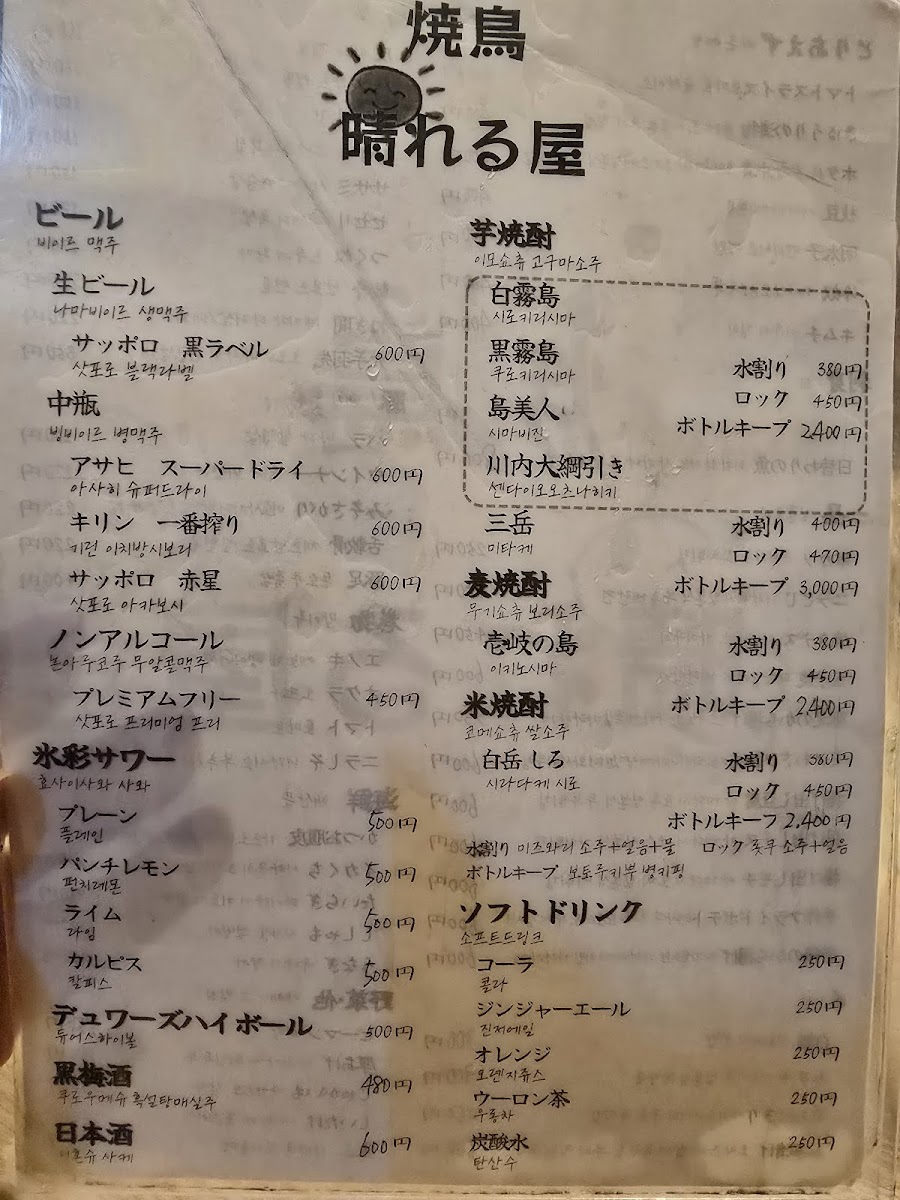 焼鳥
晴れる屋
ビール
비이르 맥주
生ビール
나마비이르 생맥주
サッポロ 黒ラベル 600円
삿포로 블랙라벨
中瓶
빙비이르 병맥주
アサヒ スーパードライ 600円
아사히 슈퍼드라이
キリン 一番搾り 600円
키린 이치방시보리
サッポロ 赤星 600円
삿포로 아카보시
ノンアルコール
논아루코루 무알콜맥주
プレミアムフリー 450円
삿포로 프리미엄 프리
氷彩サワー
효사이사와 사와
プレーン 500円
플레인
パンチレモン 500円
펀치레몬
ライム 500円
라임
カルピス 500円
칼피스
デュワーズハイボール 500円
듀어스하이볼
黒梅酒 480円
쿠로우메슈 흑설탕매실주
日本酒 600円
니혼슈 사케
芋焼酎
이모쇼츄 고구마소주
白霧島
시로키리시마
黒霧島 水割り 380円
쿠로키리시마
ロック 450円
島美人 ボトルキープ 2,400円
시마비진
川内大綱引き
센다이오오츠나히키
三岳 水割り 400円
미타케
ロック 470円
ボトルキープ 3,000円
麦焼酎
무기쇼츄 보리소주
壱岐の島 水割り 380円
이키노시마
ロック 450円
ボトルキープ 2,400円
米焼酎
코메쇼츄 쌀소주
白岳 しろ 水割り 380円
시라다케 시로
ロック 450円
ボトルキープ 2,400円
水割り 미즈와리 소주+얼음+물 ロック 롯쿠 소주+얼음
ボトルキープ 보토루키푸 병키핑
ソフトドリンク
소프트드링크
コーラ 250円
콜라
ジンジャーエール 250円
진저에일
オレンジ 250円
오렌지쥬스
ウーロン茶 250円
우롱차
炭酸水 250円
탄산수